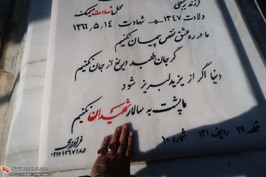 فرزند
محل شهادت
ولادت ۱۳۴۷ شهادت ۱۳۶۶.۵.۱۴
ما در ره عشق نقض پیمان نکنیم
گر جان طلبد دریغ از جان نکنیم
دنیا اگر از یزید لبریز شود
ما پشت به سالار شهیدان نکنیم
قطعه ۲۹ ردیف ۱۴۱ شماره ۱۰